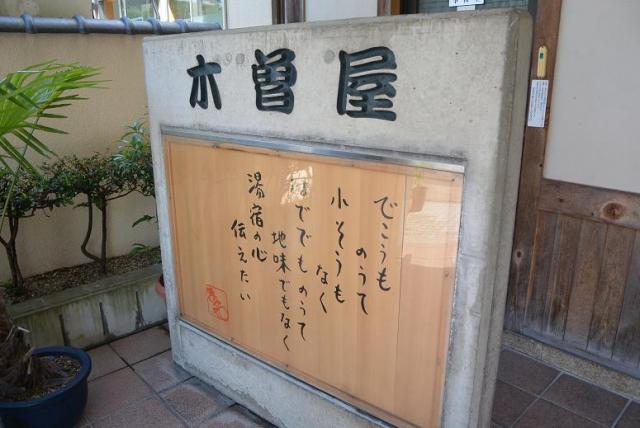 木曽屋
でこうも
のうて
小そうも
なく
はででものうて
地味でもなく
湯宿の心
伝えたい